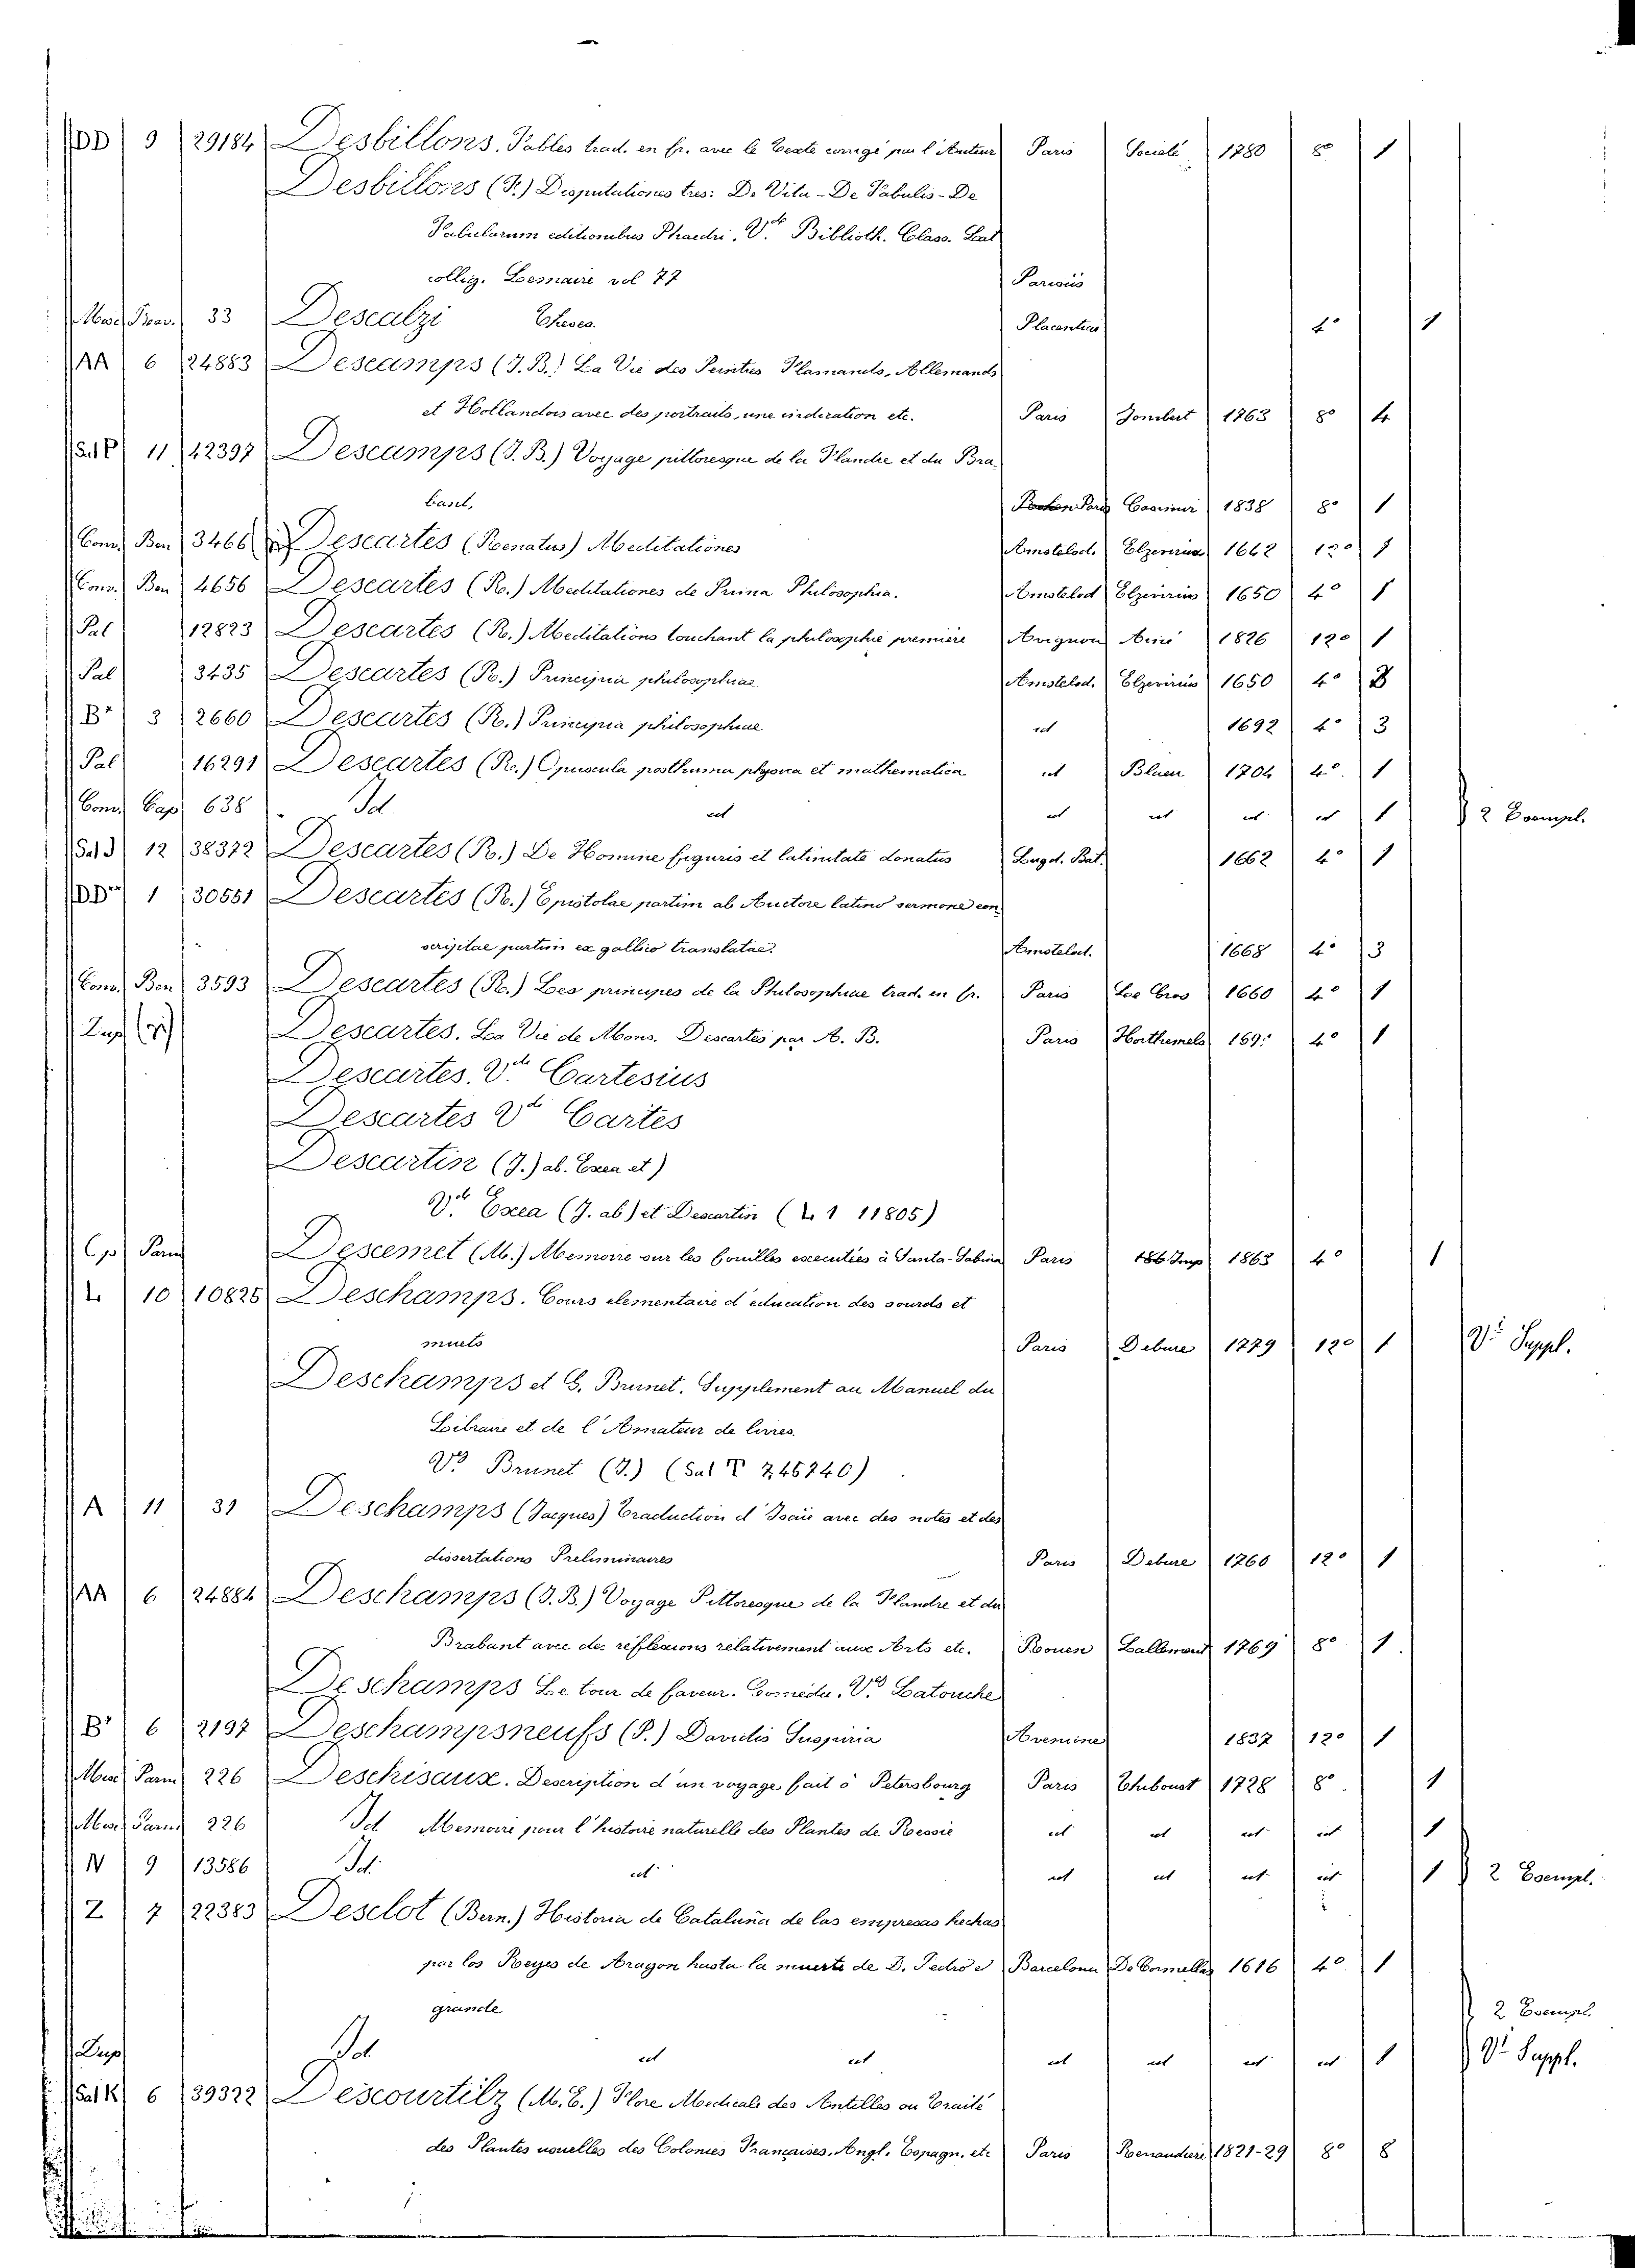 DD 9 29184 Desbillons. Fables trad. en fr. avec le texte corrigé par l'Auteur Paris Societé 1780 8° 1
Desbillons (F.) Disputationes tres: De Vita - De Fabulis - De
Fabularum editionibus Phaedri. V.de Biblioth. Class. Lat
collig. Lemaire vol 77 Parisiis
Misc. Piac. 33 Descalzi Theses. Placentiae 4° 1
AA 6 24883 Descamps (J. B.) La Vie des Peintres Flamands, Allemands
et Hollandois avec des portraits, une indication etc. Paris Jombert 1763 8° 4
Sal P 11 42397 Descamps (J. B.) Voyage pittoresque de la Flandre et du Bra-
bant, Paris Casimir 1838 8° 1
Conv. Ben 3466 Descartes (Renatus) Meditationes Amstelod. Elzevirius 1662 12° 1
Conv. Ben 4656 Descartes (R.) Meditationes de Prima Philosophia. Amstelod Elzevirius 1650 4° 1
Pal 12823 Descartes (R.) Meditations touchant la philosophie première Avignon 1826 12° 1
Pal 3435 Descartes (R.) Principia philosophiae Amstelod. Elzevirius 1650 4°
B" 3 2660 Descartes (R.) Principia philosophiae ut 1692 4° 3
Pal 16291 Descartes (R.) Opuscula posthuma physica et mathematica ut Blaeu 1704 4° 1
Conv. Cap. 638 Id. ut ut ut ut ut 1 2 Esempl.
Sal J 12 38372 Descartes (R.) De Homine figuris et latinitate donatus Lugd. Bat. 1662 4° 1
DD" 1 30551 Descartes (R.) Epistolae partim ab Auctore latino sermone con-
scriptae partim ex gallico translatae. Amstelod. 1668 4° 3
Conv. Ben 3593 Descartes (R.) Les principes de la Philosophie trad. en fr. Paris Le Gros 1660 4° 1
Dup Descartes. La Vie de Mons. Descartes par A. B. Paris Horthemels 169. 4° 1
Descartes. V.de Cartesius
Descartes V.de Cartes
Descartin (J.) ab. Exea et)
V.de Exea (J. ab) et Descartin (L 1 11805)
Op Parm Descemet (M.) Memoire sur les fouilles executées à Santa-Sabina Paris Imp 1863 4° 1
L 10 10825 Deschamps. Cours elementaire d'education des sourds et
muets Paris Debure 1779 12° 1 V. Suppl.
Deschamps et G. Brunet. Supplement au Manuel du
Libraire et de l'Amateur de livres.
V.de Brunet (J.) (Sal T 7,46740)
A 11 31 Deschamps (Jacques) Traduction d'Isaïe avec des notes et des
dissertations Preliminaires Paris Debure 1760 12° 1
AA 6 24884 Deschamps (J. B.) Voyage Pittoresque de la Flandre et du
Brabant avec des réflexions relativement aux Arts etc. Rouen Lallemant 1769 8° 1
Deschamps Le tour de faveur. Comédie. V.de Latouche
B' 6 2197 Deschampsneufs (P.) Davidis Suspiria Avenione 1837 12° 1
Misc. Parm 226 Deschisaux. Description d'un voyage fait à Petersbourg Paris Thiboust 1728 8° 1
Misc. Parm 226 Id Memoire pour l'histoire naturelle des Plantes de Rossie ut ut ut ut 1
N 9 13586 Id. ut ut ut ut ut 1 2 Esempl.
Z 7 22383 Desclot (Bern.) Historia de Cataluña de las empresas hechas
par los Reyes de Aragon hasta la muerte de D. Pedro el Barcelona De Cormellas 1616 4° 1
grande 2 Esempl.
Dup Id ut ut ut ut ut ut 1 V. Suppl.
Sal K 6 39322 Descourtilz (M. E.) Flore Medicale des Antilles ou Traité
des Plantes usuelles des Colonies Françaises, Angl. Espagn. etc Paris Renaudiere 1821-29 8° 8